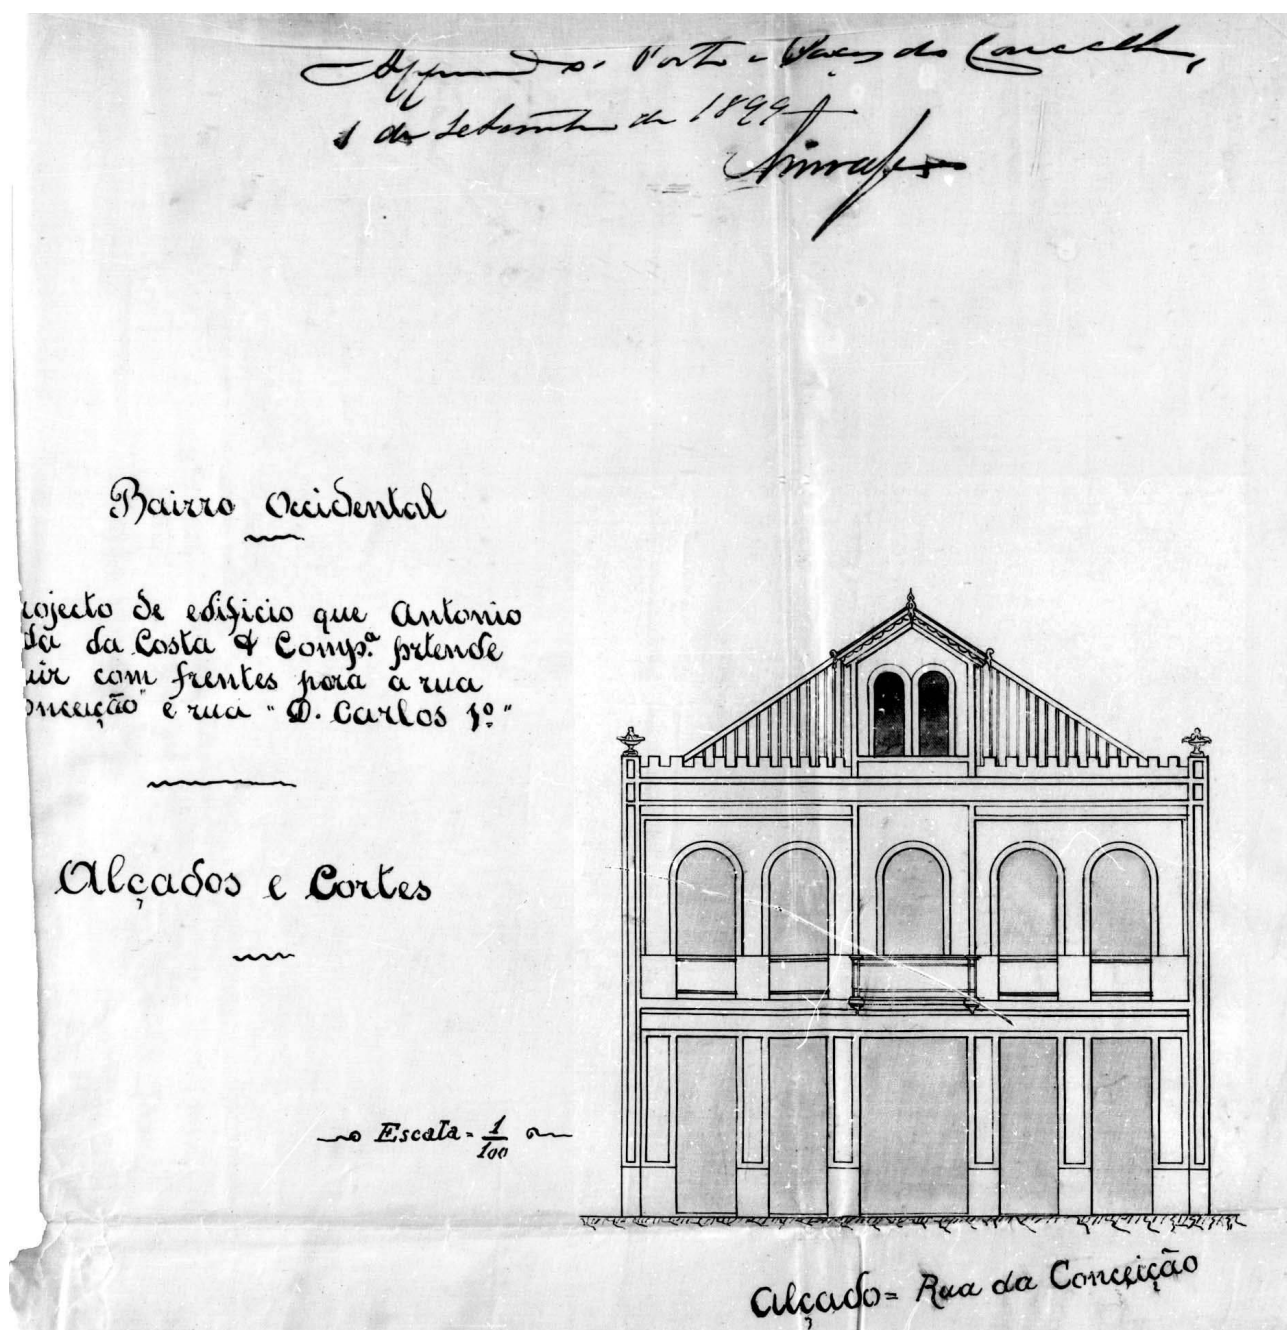 Approvado. Porto e Paços do Concelho,
1 de Setembro de 1899
Bairro Occidental
rojecto de edificio que Antonio
da Costa & Comp.ª pretende
uir com frentes para a rua
onceição" e rua "D. Carlos 1º."
Alçados e Cortes
Escala = 1/100
Alçado = Rua da Conceição